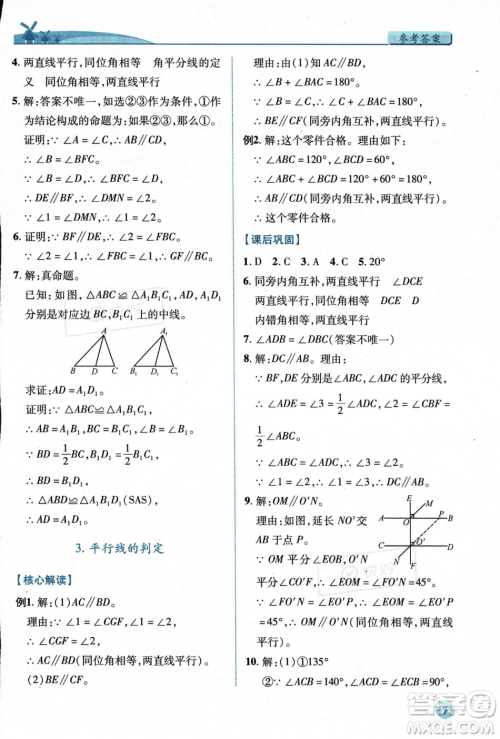 参考答案
4. 两直线平行，同位角相等　角平分线的定
义　同位角相等，两直线平行
5. 解：答案不唯一，如选②③作为条件，①
作为结论构成的命题为真命题．
证明：∵∠A=∠C，∴AB∥CD．
∴∠B=∠BFC．
∵∠1=∠2，∠2=∠BMF，
∴∠1=∠BMF．
∴DE∥BF．∴∠DMN=∠BFC．
∵∠1=∠DMN，∴∠B=∠1．
6. 证明：∵∠A=∠F，∴AC∥DF．
∴∠C=∠FBC．
7. 解：真命题．
已知：如图，△ABC≌△A₁B₁C₁，AD，A₁D₁
分别是对应边BC，B₁C₁上的中线．
A
B D C
A₁
B₁ D₁ C₁
求证：AD=A₁D₁．
证明：∵△ABC≌△A₁B₁C₁，
∴AB=A₁B₁，BC=B₁C₁，∠B=∠B₁．
∵BD=1/2BC，B₁D₁=1/2B₁C₁，
∴BD=B₁D₁．
∴△ABD≌△A₁B₁D₁(SAS)．
∴AD=A₁D₁．
3. 平行线的判定
【核心解读】
例1. 解：(1)AC∥BD．
理由：∵∠A=∠CGF，
∴AC∥BD(同位角相等，两直线平行)．
(2)BE∥CF．
理由：由(1)知AC∥BD，
∴∠ABD+∠A=180°．
∴BE∥CF(同旁内角互补，两直线平行)．
例2. 解：这个零件合格．理由如下：
∵∠ABC=120°，∠BCD=60°，
∴∠ABC+∠BCD=120°+60°=180°．
∴AB∥CD(同旁内角互补，两直线平行)．
∴这个零件合格．
【课后巩固】
1. D　2. C　3. A　4. C　5. 20°
6. 同旁内角互补，两直线平行　∠DCE
两直线平行，同位角相等　DCE　D
内错角相等，两直线平行
7. ∠ADB=∠DBC(答案不唯一)
8. 解：DC∥AB．
理由：∵BF，DE分别是∠ABC，∠ADC的平分线，
∴∠ADE=∠3=1/2∠ADC，∠2=∠CBF=
1/2∠ABC．
∵∠ABC=∠ADC，∴∠3=∠2．
∵∠1=∠2，∴∠1=∠3．∴DC∥AB．
9. 解：OM∥O′N．
理由：如图，延长NO′，
交AB于点P．
∵OM∥O′N，
∴∠EOM=∠EPO′=45°．
∵∠FO′N=∠EO′P=45°，
∴∠EPO′=∠EO′P=∠FO′N．
∴∠EOM=∠FO′N=45°．
10. 解：(1)①135°
②∵∠ACB=140°，∠ECB=90°，